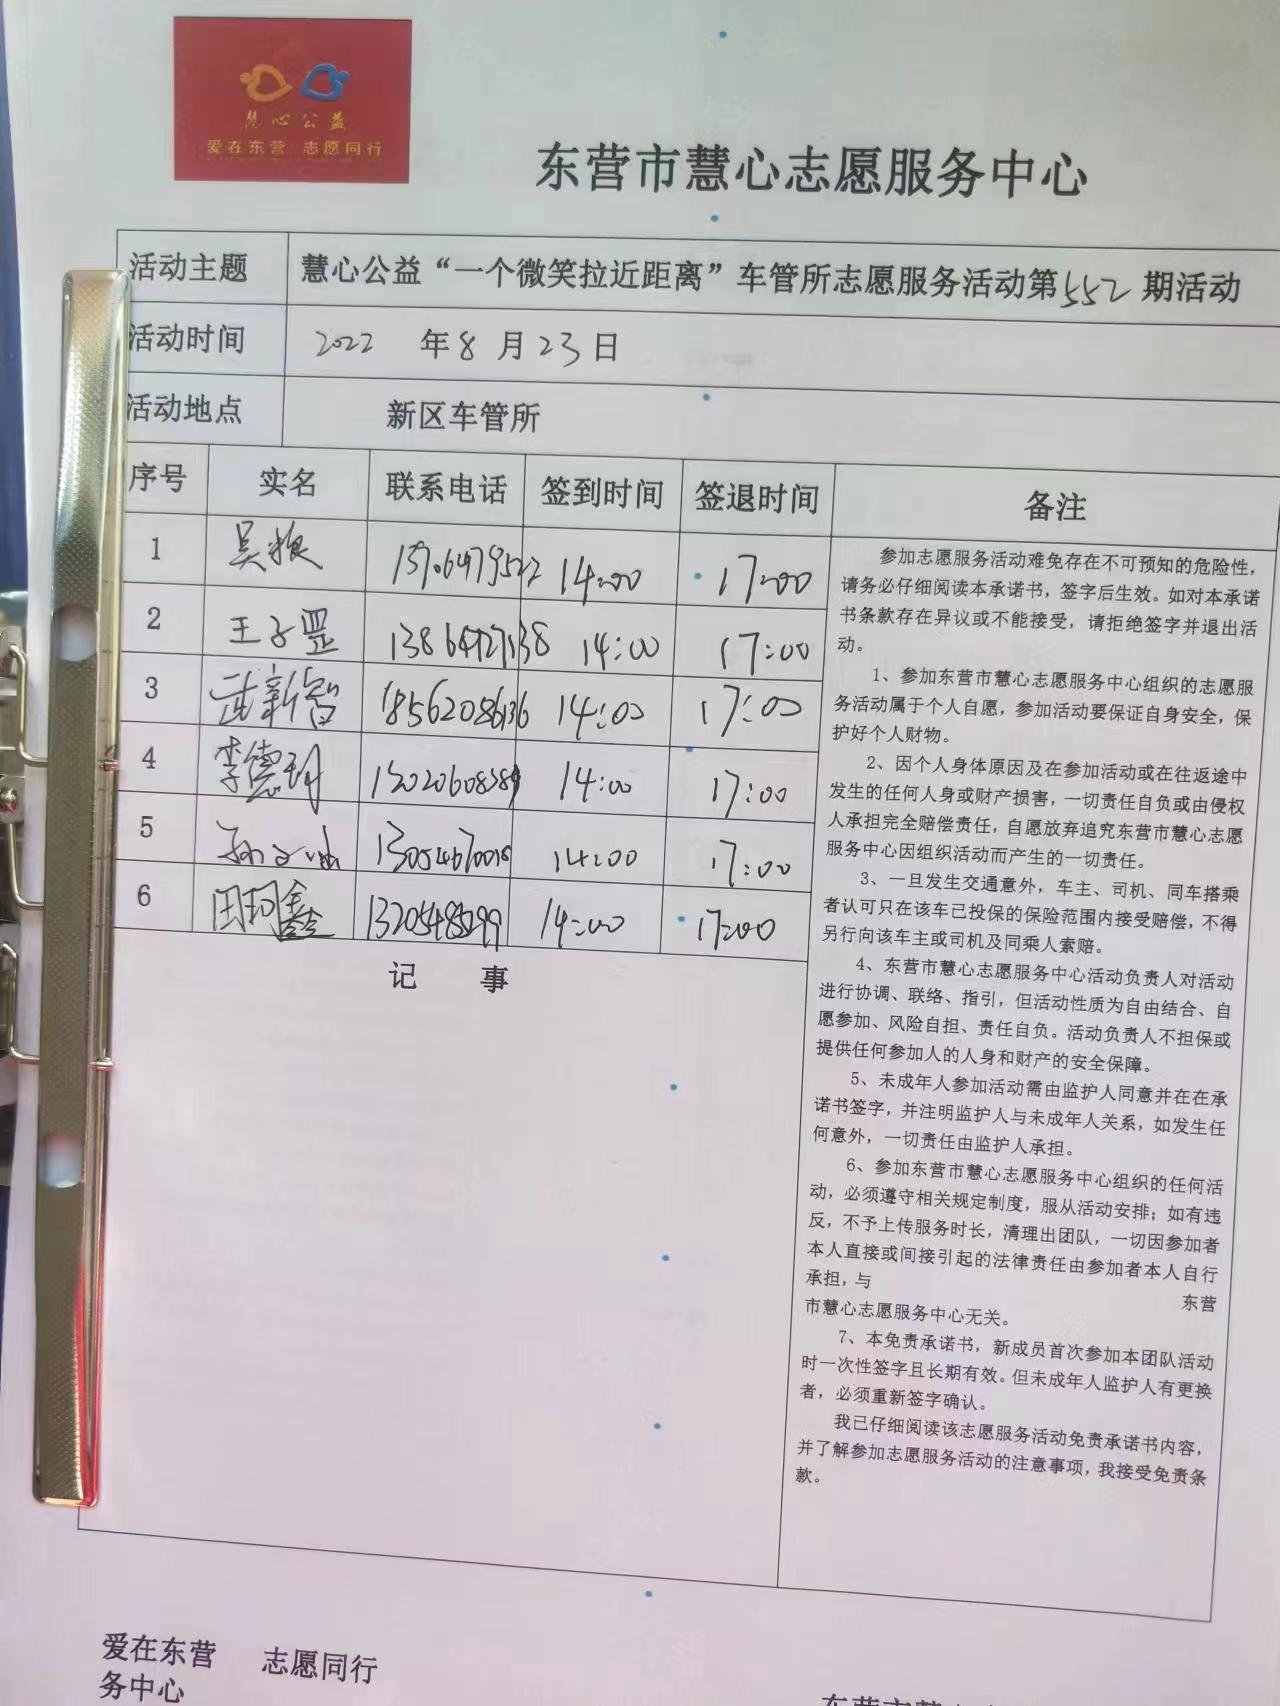 慧心公益
爱在东营 志愿同行
东营市慧心志愿服务中心
活动主题 慧心公益“一个微笑拉近距离”车管所志愿服务活动第552期活动
活动时间 2022 年8月23日
活动地点 新区车管所
序号 实名 联系电话 签到时间 签退时间 备注
1 吴 14:00 17:00
2 王子罡 14:00 17:00
3 武新智 18562086136 14:00 17:00
4 李德 14:00 17:00
5 孙 14:00 17:00
6 田珂鑫 13205485299 14:00 17:00
记 事
参加志愿服务活动难免存在不可预知的危险性，
请务必仔细阅读本承诺书，签字后生效。如对本承诺
书条款存在异议或不能接受，请拒绝签字并退出活
动。
1、参加东营市慧心志愿服务中心组织的志愿服
务活动属于个人自愿，参加活动要保证自身安全，保
护好个人财物。
2、因个人身体原因及在参加活动或在往返途中
发生的任何人身或财产损害，一切责任自负或由侵权
人承担完全赔偿责任，自愿放弃追究东营市慧心志愿
服务中心因组织活动而产生的一切责任。
3、一旦发生交通意外，车主、司机、同车搭乘
者认可只在该车已投保的保险范围内接受赔偿，不得
另行向该车主或司机及同乘人索赔。
4、东营市慧心志愿服务中心活动负责人对活动
进行协调、联络、指引，但活动性质为自由结合、自
愿参加、风险自担、责任自负。活动负责人不担保或
提供任何参加人的人身和财产的安全保障。
5、未成年人参加活动需由监护人同意并在在承
诺书签字，并注明监护人与未成年人关系，如发生任
何意外，一切责任由监护人承担。
6、参加东营市慧心志愿服务中心组织的任何活
动，必须遵守相关规定制度，服从活动安排；如有违
反，不予上传服务时长，清理出团队，一切因参加者
本人直接或间接引起的法律责任由参加者本人自行
承担，与 东营
市慧心志愿服务中心无关。
7、本免责承诺书，新成员首次参加本团队活动
时一次性签字且长期有效。但未成年人监护人有更换
者，必须重新签字确认。
我已仔细阅读该志愿服务活动免责承诺书内容，
并了解参加志愿服务活动的注意事项，我接受免责条
款。
爱在东营 志愿同行
务中心